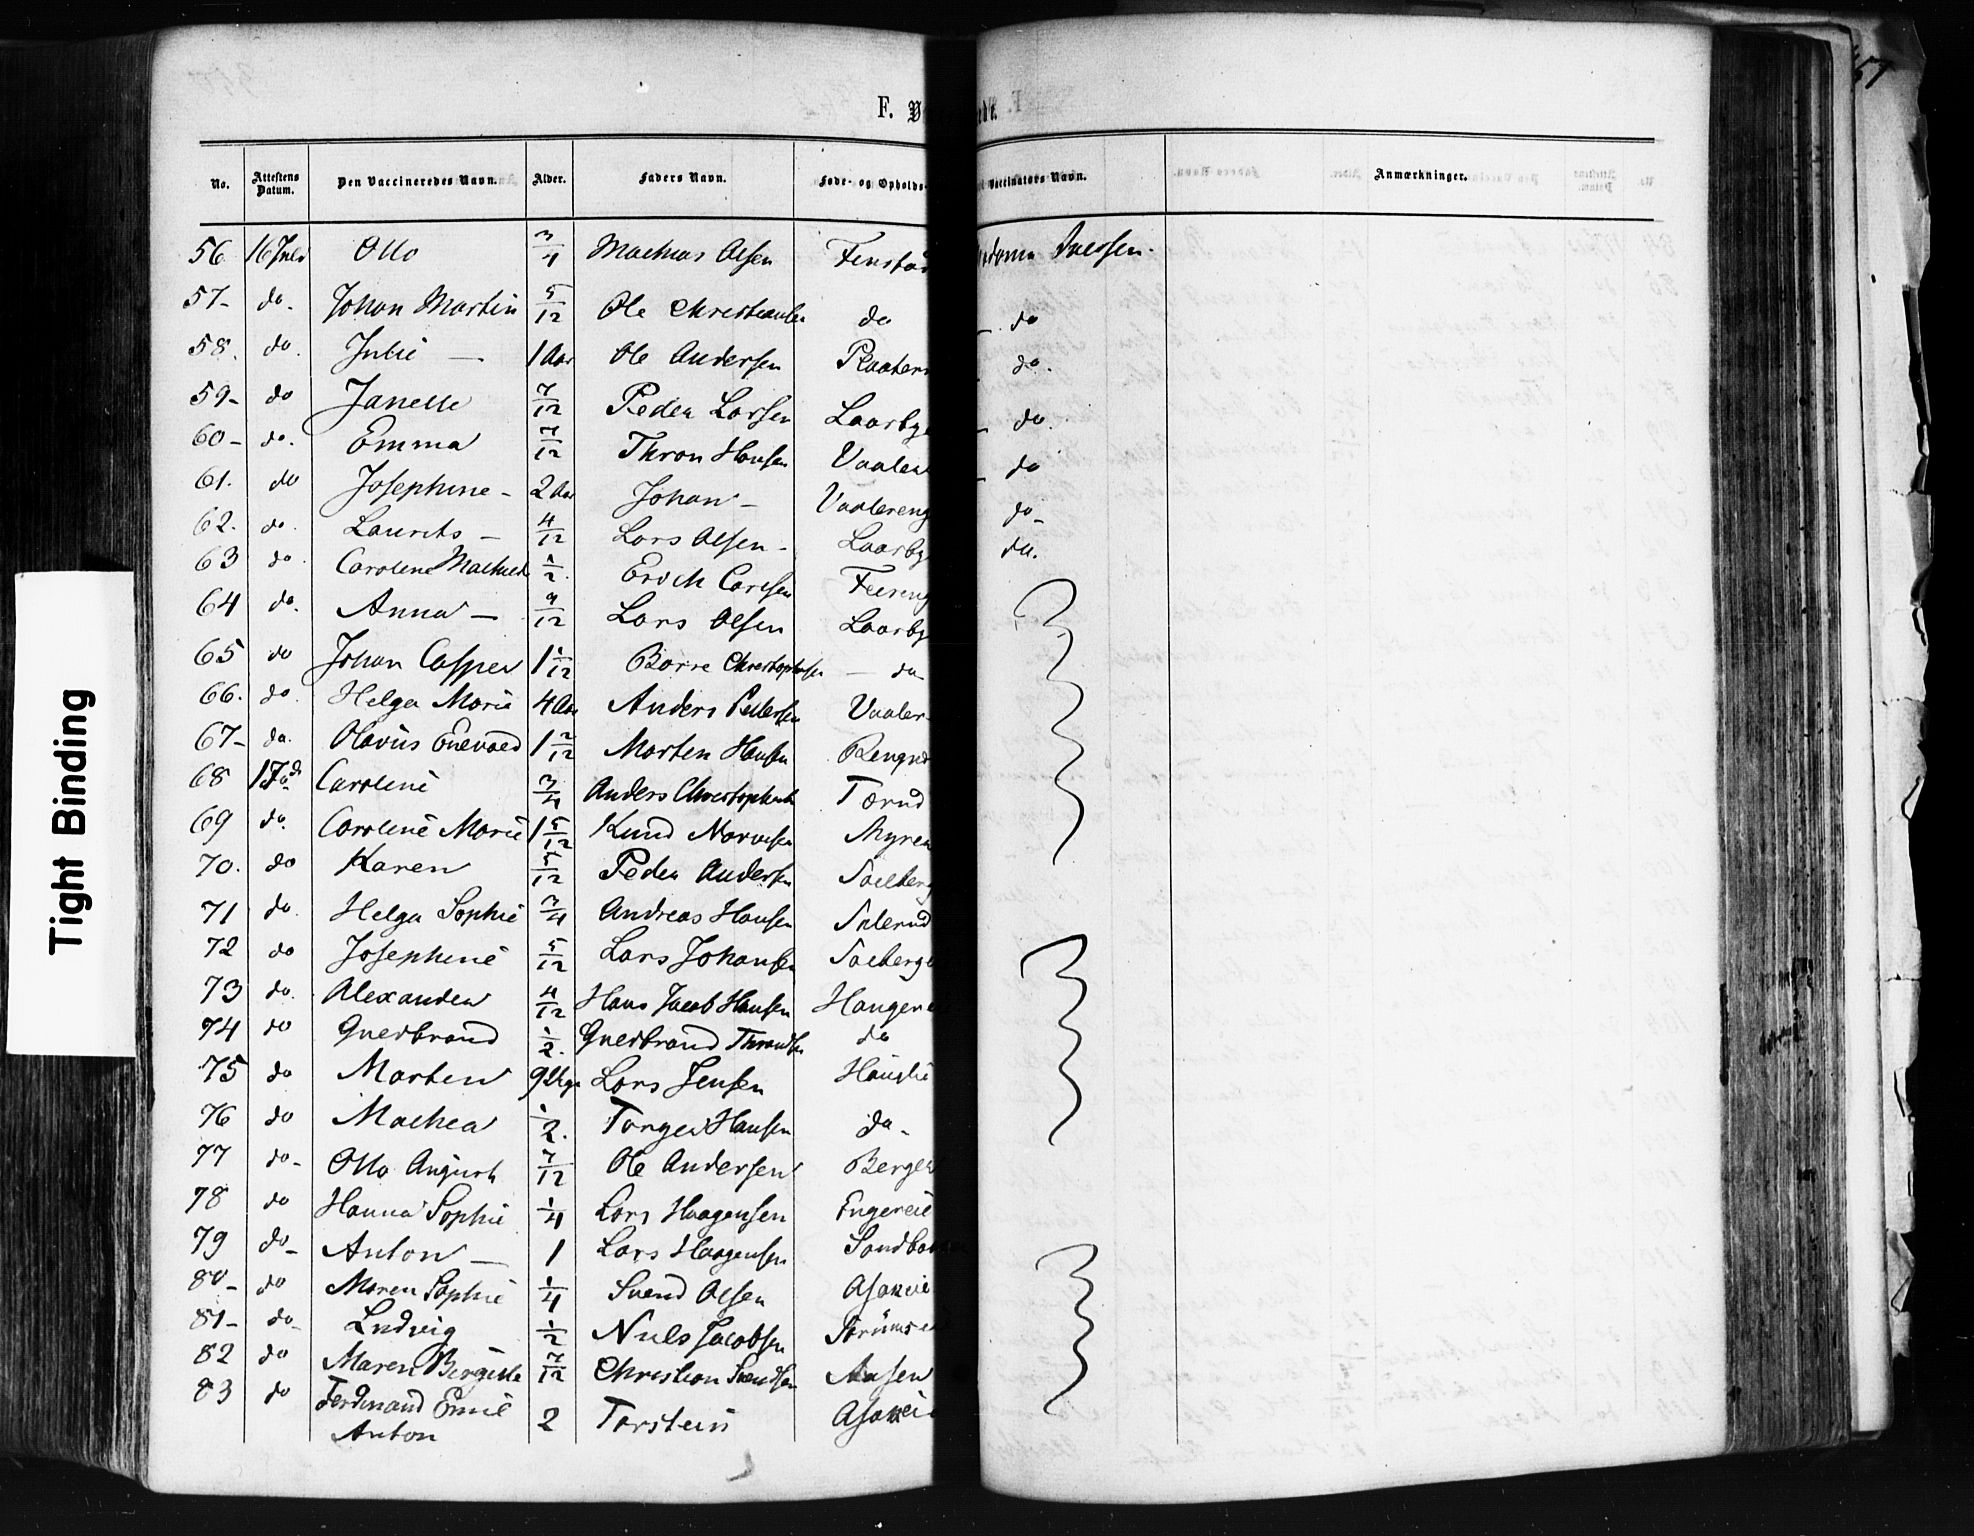 57
F. V
ede.
No. Attestens Datum. Den Vaccineredes Navn. Alder. Faders Navn. Føde- og Opholds- Vaccinators Navn. Anmærkninger.
56 16 Juli Otto 3/4 Mathias Olsen Fenstad
57- do. Johan Martin 5/12 Ole Christiansen do do
58. do. Julie — 1 Aar Ole Andersen do.
59- do Janette 7/12 Peder Larsen Laarbye do.
60- do. Emma 7/12 Thron Hansen Vaalen do
61. do Josephine- 2 Aar Johan- Vaalereng do-
62. do. Laurits- 4/12 Lars Olsen- Laarby do.
63 do. Caroline Mathilde 1/2. Erick Carlsen
64 do. Anna- 9/12 Lars Olsen Laarby
65 do Johan Casper 1 1/12 Borre Christophersen — do
66. do. Helga Marie 4 Aar Anders Pettersen Vaaler
67- do. Olavus Enevold 1 2/12 Morten Hansen
68 17 do Caroline 3/4 Anders Christophersen Tærud
69 do. Caroline Marie 1 5/12 Knud Myren
70. do Karen 5/12 Peder Andersen
71 do Helga Sophie 3/4 Andreas Hansen
72 do Josephine 5/12 Lars Johansen
73 do. Alexander 4/12 Hans Jacob Hansen Haugerei
74 do Gulbrand 1/2. Gulbrand Throndsen do
75 do Morten 9 Uger Lars Jensen
76 do Mathea 1/2. Torger Hansen do-
77 do- Otto August 7/12 Ole Andersen Bergen
78 do Hanna Sophie 1/4 Lars Haagensen Engereie
79 do- Anton — 1 Lars Haagensen Sandba
80- do Maren Sophie 1/4 Svend Olsen Asakeie
81- do- Ludvig 1/2 Niels Jacobsen
82 do Maren Birgitte 7/12 Christian Svendsen Aasen
83 do Ferdinand Emil 2 Torstein Asakeie
Anton
Tight Binding